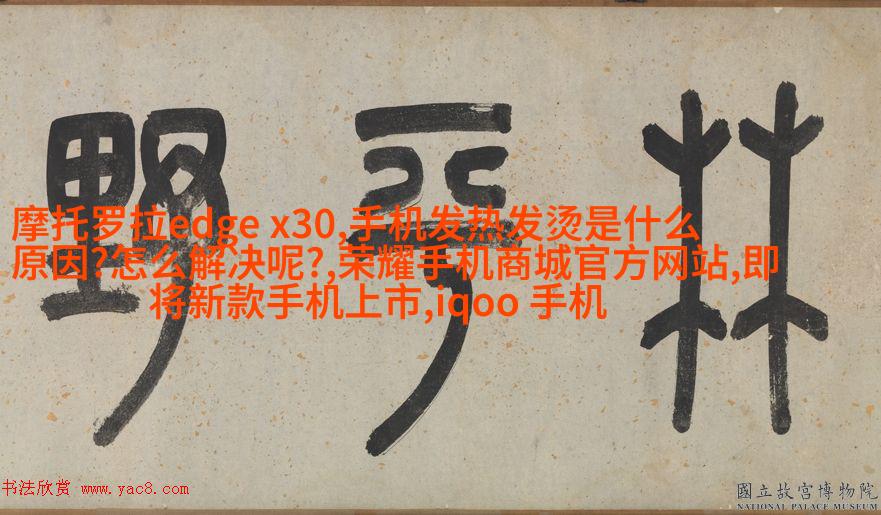 林平野
摩托罗拉edge x30,手机发热发烫是什么
原因?怎么解决呢?,荣耀手机商城官方网站,即
将新款手机上市,iqoo 手机
书法欣赏 www.yac8.com
國立故宮博物院
NATIONAL PALACE MUSEUM